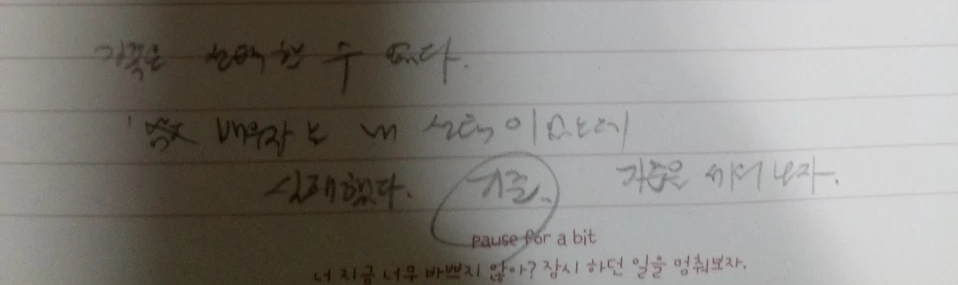 가족은 선택할 수 없다.
배우자는 내 선택이었는데
실패했다. 기준. 기준을 세워 보자.
pause for a bit
너 지금 너무 바쁘지 않아? 잠시 하던 일을 멈춰보자.